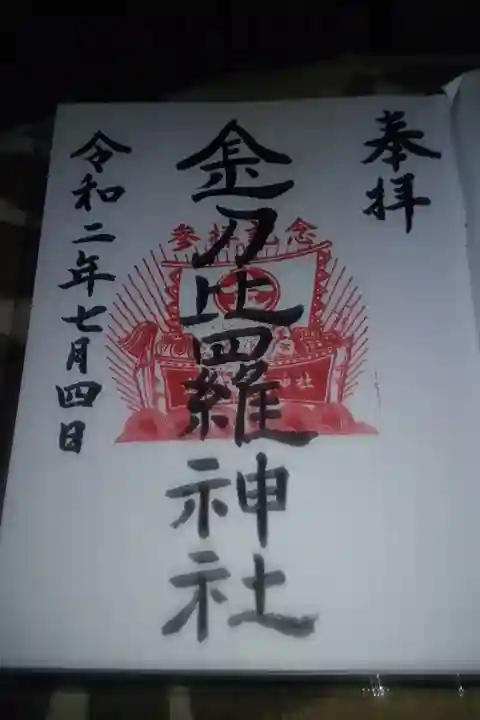 奉拝
金刀比羅神社
参拝記念
神社
令和二年七月四日